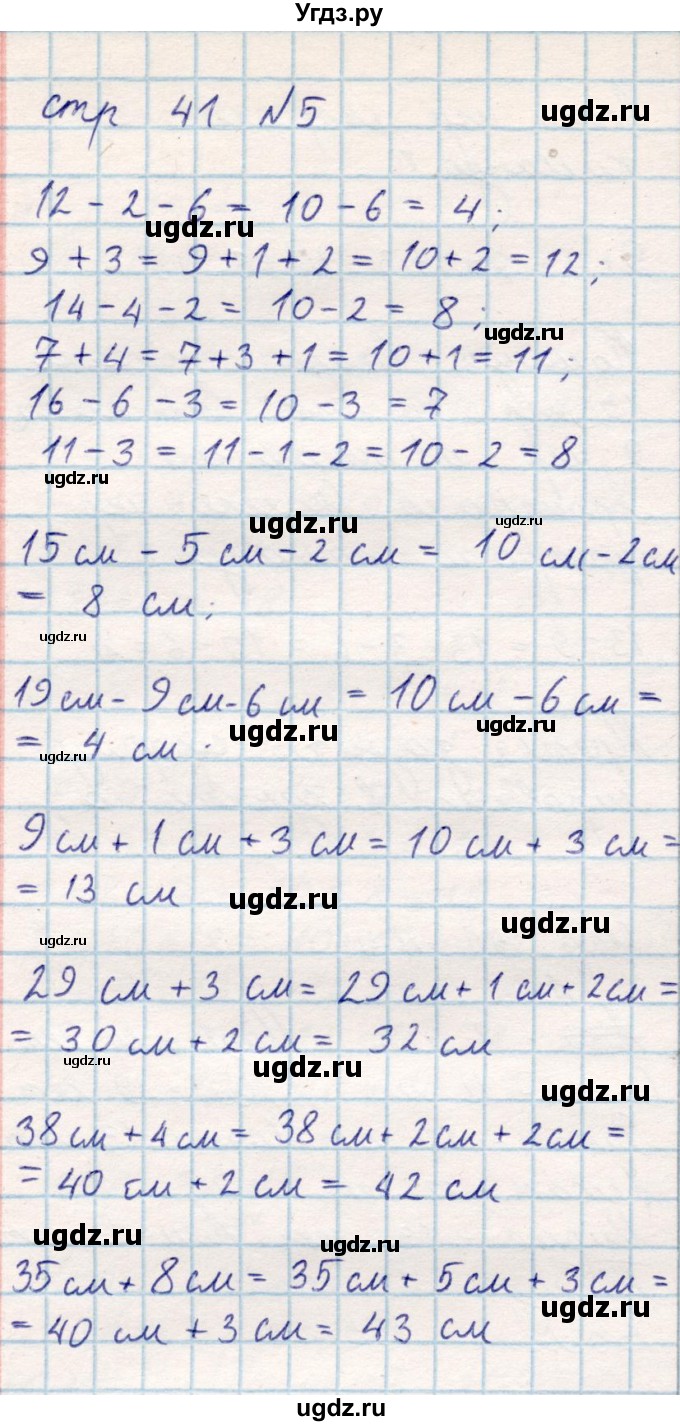 Угдз.ру
стр 41 №5
ugdz.ru
12 - 2 - 6 = 10 - 6 = 4;
ugdz.ru
9 + 3 = 9 + 1 + 2 = 10 + 2 = 12;
14 - 4 - 2 = 10 - 2 = 8;
ugdz.ru
7 + 4 = 7 + 3 + 1 = 10 + 1 = 11;
16 - 6 - 3 = 10 - 3 = 7
11 - 3 = 11 - 1 - 2 = 10 - 2 = 8
ugdz.ru
ugdz.ru
ugdz.ru
15 см - 5 см - 2 см = 10 см - 2 см
= 8 см;
ugdz.ru
19 см - 9 см - 6 см = 10 см - 6 см =
ugdz.ru
ugdz.ru
= 4 см.
ugdz.ru
9 см + 1 см + 3 см = 10 см + 3 см =
= 13 см
ugdz.ru
ugdz.ru
ugdz.ru
29 см + 3 см = 29 см + 1 см + 2 см =
= 30 см + 2 см = 32 см
ugdz.ru
ugdz.ru
ugdz.ru
38 см + 4 см = 38 см + 2 см + 2 см =
= 40 см + 2 см = 42 см
ugdz.ru
ugdz.ru
35 см + 8 см = 35 см + 5 см + 3 см =
ugdz.ru
= 40 см + 3 см = 43 см
ugdz.ru